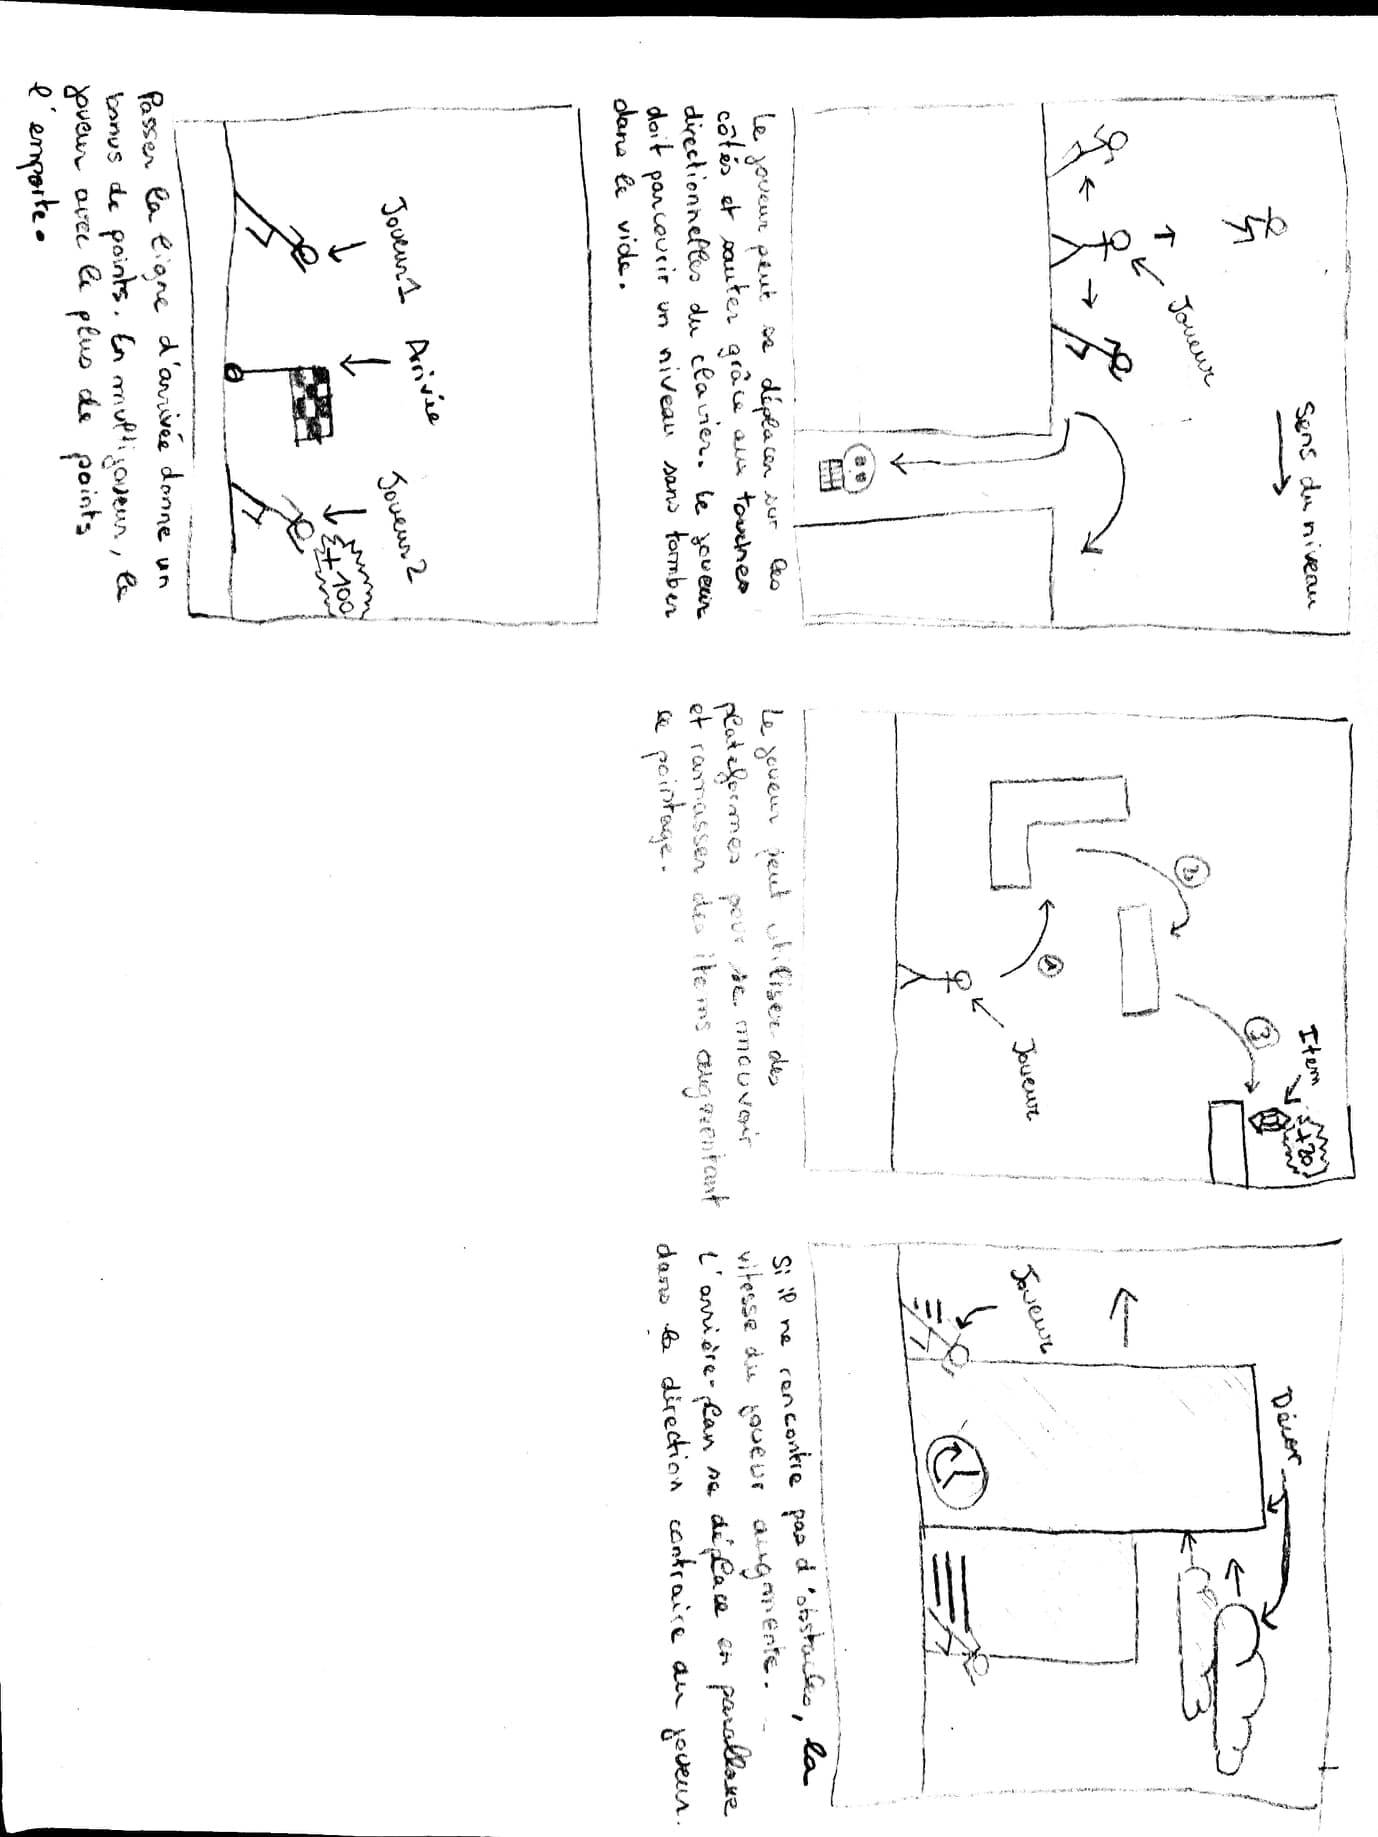 Sens du niveau
Joueur
Le joueur peut se déplacer sur les
côtés et sauter grâce aux touches
directionnelles du clavier. Le joueur
doit parcourir un niveau sans tomber
dans le vide.
Item
+20
3
2
1
Joueur
Le joueur peut utiliser des
plateformes pour se mouvoir
et ramasser des items augmentant
le pointage.
Décor
Joueur
Si il ne rencontre pas d'obstacles, la
vitesse du joueur augmente.
L'arrière-plan se déplace en parallaxe
dans la direction contraire au joueur.
Joueur 1
Arrivée
Joueur 2
+100
Passer la ligne d'arrivée donne un
bonus de points. En multijoueur, le
joueur avec le plus de points
l'emporte.